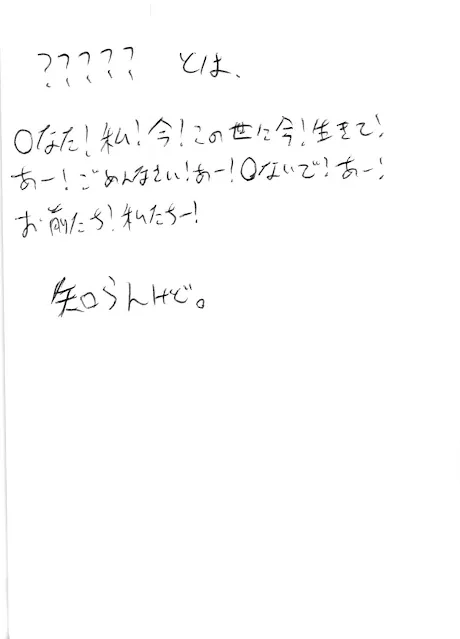 ????? とは、
○なた!私!今!この世に今!生きて!
あー!ごめんなさい!あー!○ないで!あー!
お前たち!私たちー!
知らんけど。